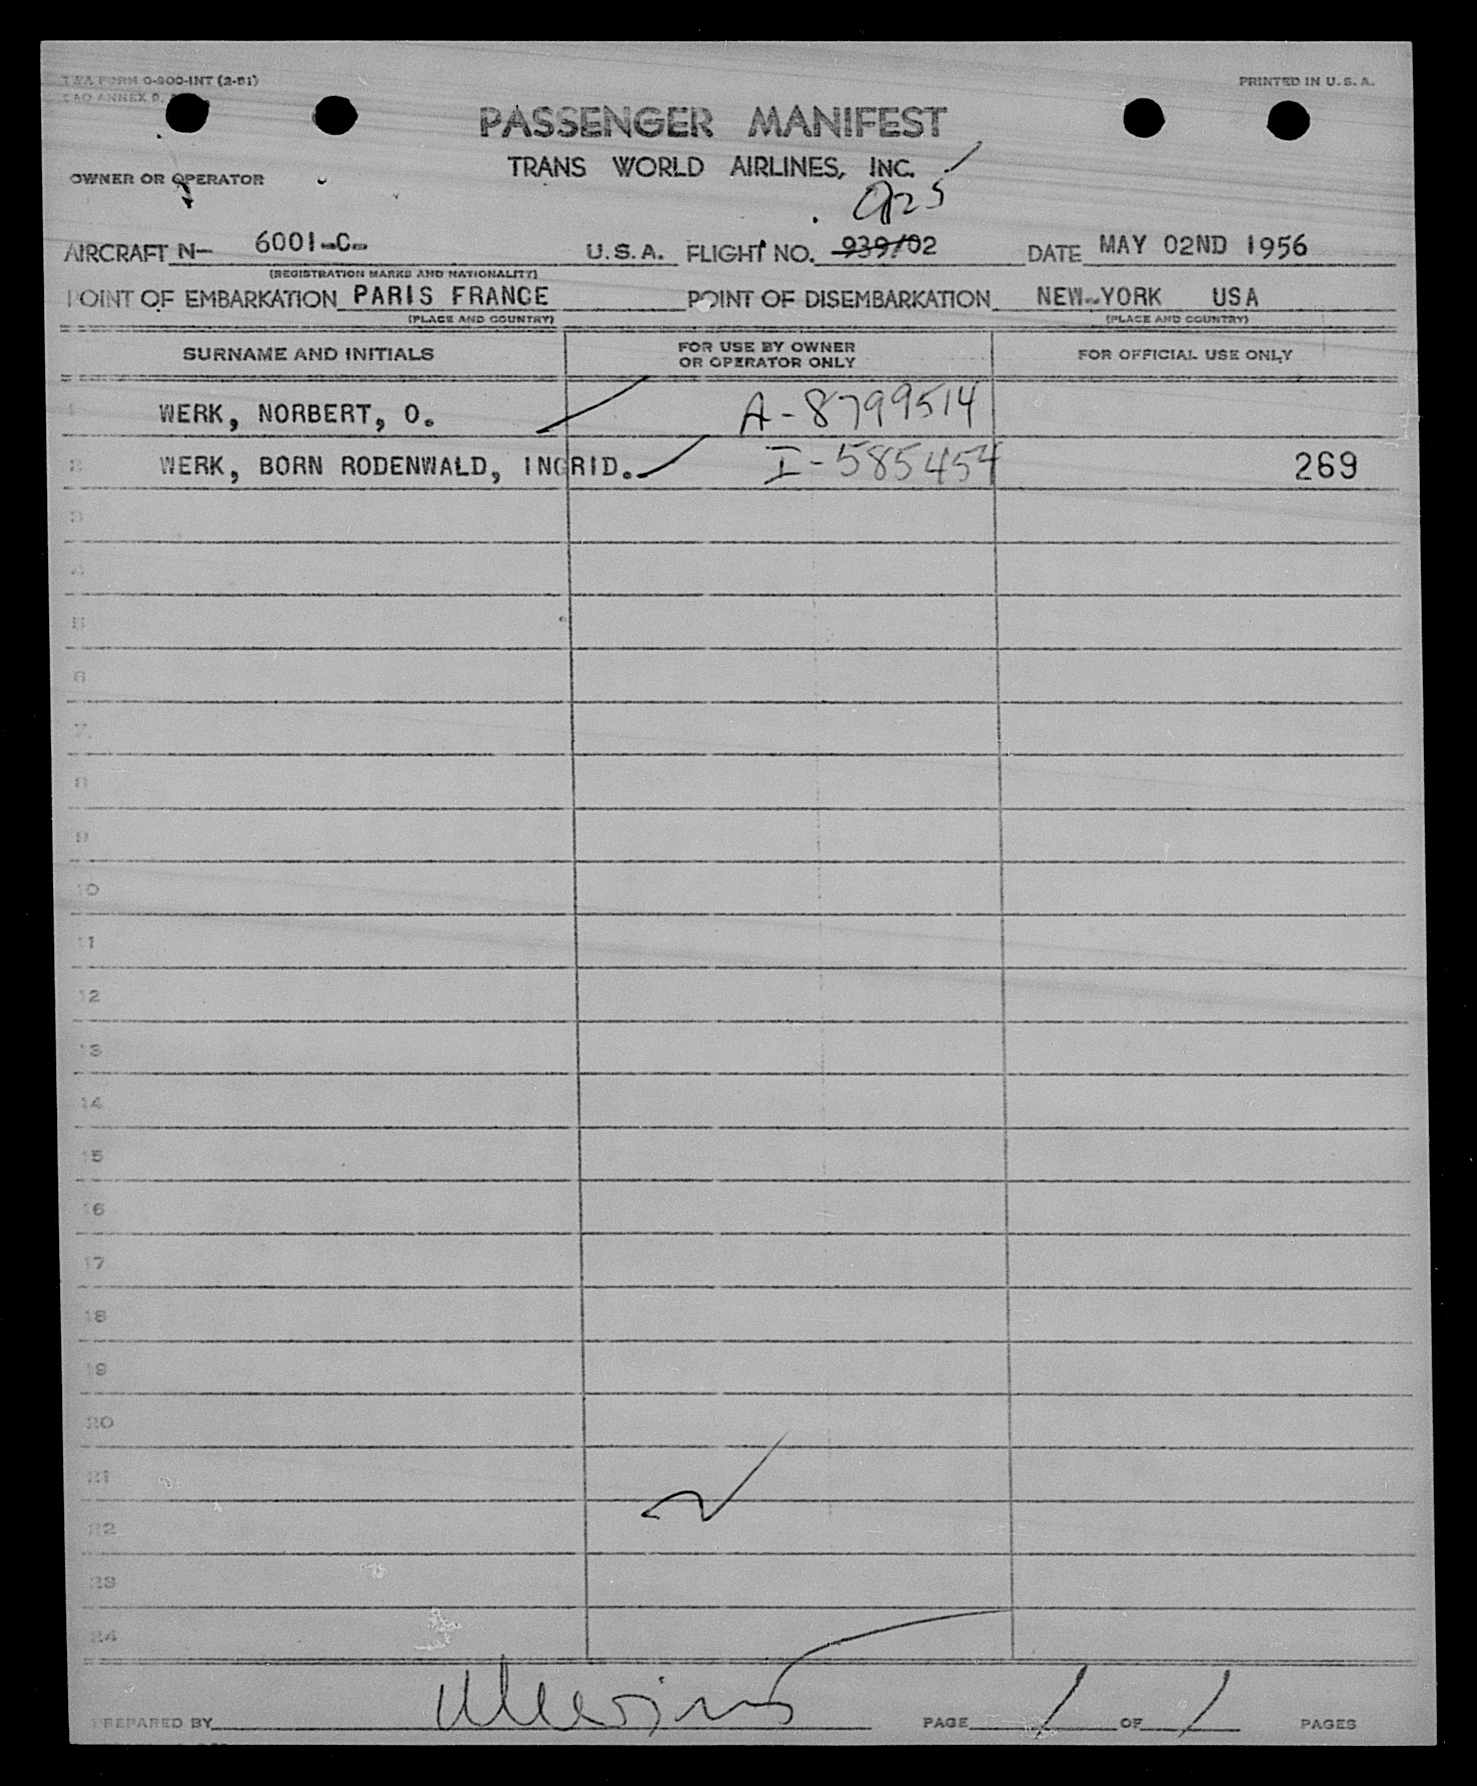 TWA FORM O-200-INT (2-51)
PRINTED IN U.S.A.
PASSENGER MANIFEST
TRANS WORLD AIRLINES, INC.
OWNER OR OPERATOR
925
AIRCRAFT N- 6001-C- U.S.A. FLIGHT NO. 939/02 DATE MAY 02ND 1956
(REGISTRATION MARKS AND NATIONALITY)
POINT OF EMBARKATION PARIS FRANCE POINT OF DISEMBARKATION NEW-YORK USA
(PLACE AND COUNTRY) (PLACE AND COUNTRY)
SURNAME AND INITIALS FOR USE BY OWNER OR OPERATOR ONLY FOR OFFICIAL USE ONLY
1 WERK, NORBERT, O. A-8799514
2 WERK, BORN RODENWALD, INGRID. I-585454 269
3
4
5
6
7
8
9
10
11
12
13
14
15
16
17
18
19
20
21
22
23
24
PREPARED BY PAGE 1 OF 1 PAGES